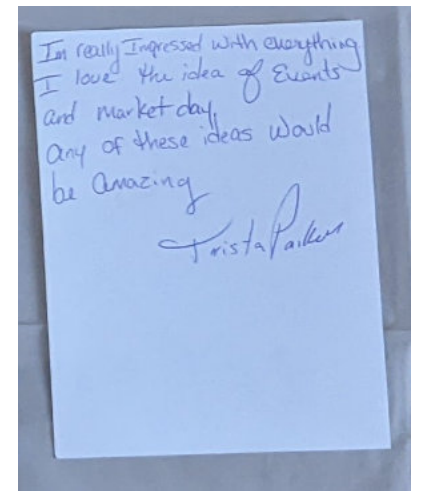 Im really Impressed with everything
I love the idea of Events
and market day,
any of these ideas would
be amazing
Trista Parker